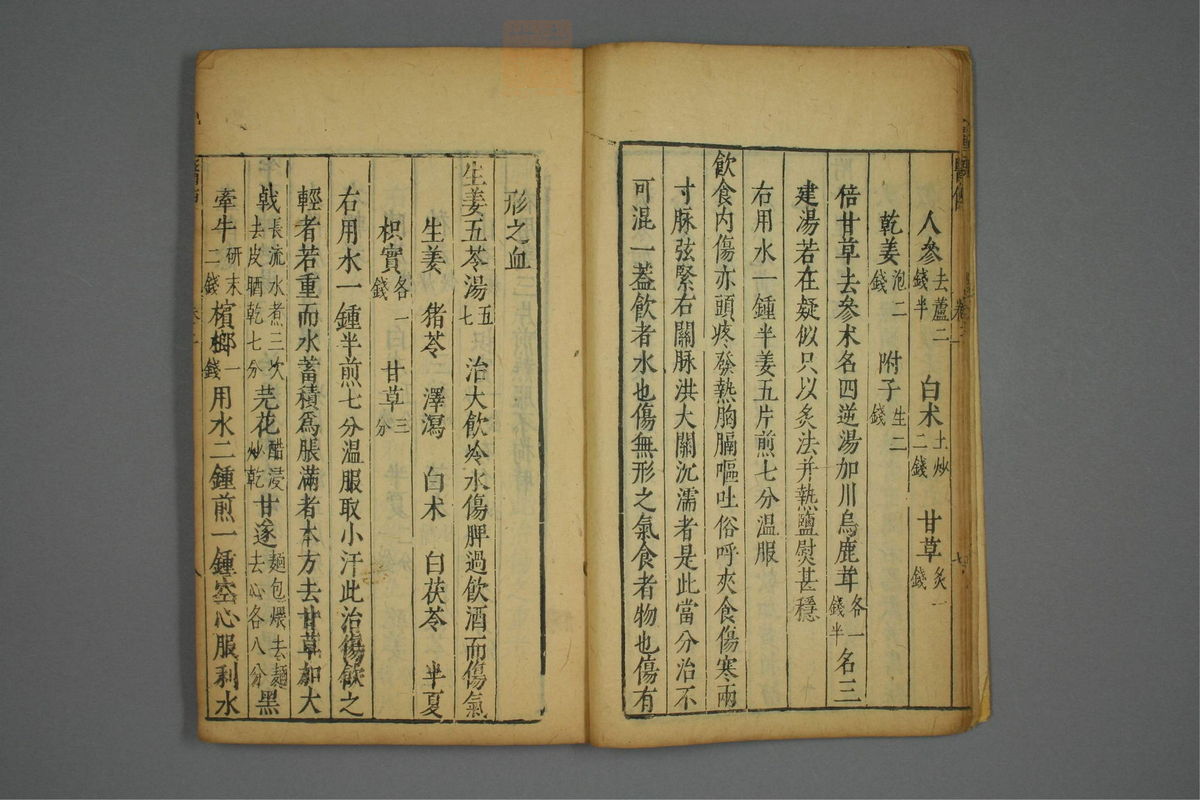 人參去蘆二錢半　白朮土炒二錢　甘草炙一錢
乾姜泡二錢　附子生二錢
倍甘草去參朮名四逆湯加川烏鹿茸各一錢半名三
建湯若在疑似只以炙法并熱鹽熨甚穩
右用水一鍾半姜五片煎七分溫服
飲食內傷亦頭疼發熱胸膈嘔吐俗呼夾食傷寒兩
寸脉弦緊右關脉洪大關沉濡者是此當分治不
可混一葢飲者水也傷無形之氣食者物也傷有
形之血
生姜五苓湯五七　治大飲冷水傷脾過飲酒而傷氣
生姜　猪苓　澤瀉　白朮　白茯苓　半夏
枳實各一錢　甘草三分
右用水一鍾半煎七分溫服取小汗此治傷飲之
輕者若重而水蓄積爲脹滿者本方去甘草加大
戟長流水煮三次去皮晒乾七分芫花醋浸炒乾甘遂麵包煨去麵去心各八分黑
牽牛研末二錢檳榔一錢用水二鍾煎一鍾空心服利水